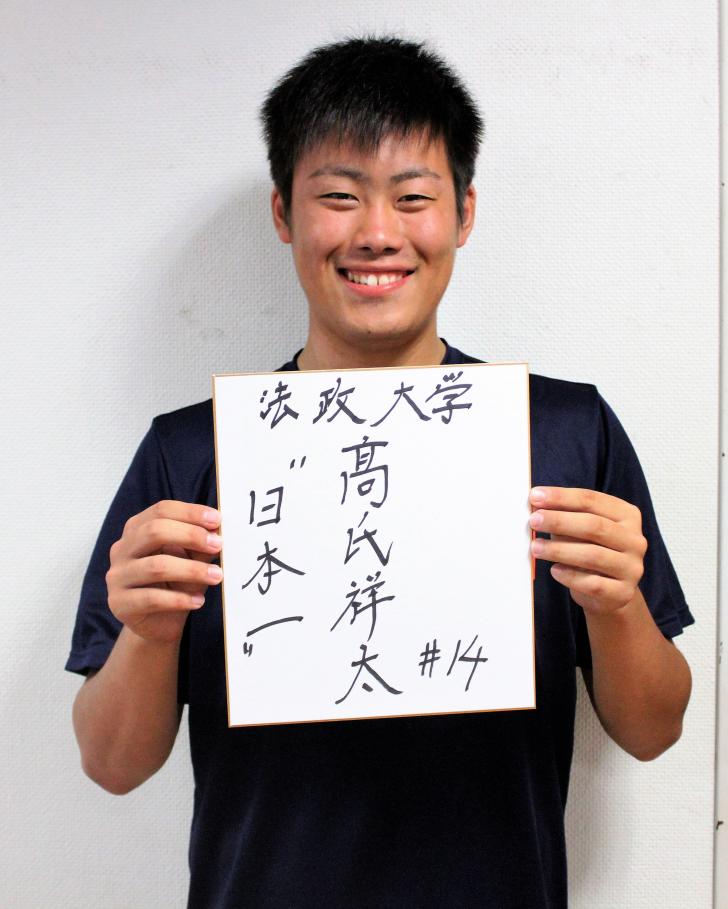 法政大学
髙氏祥太 #14
"日本一"